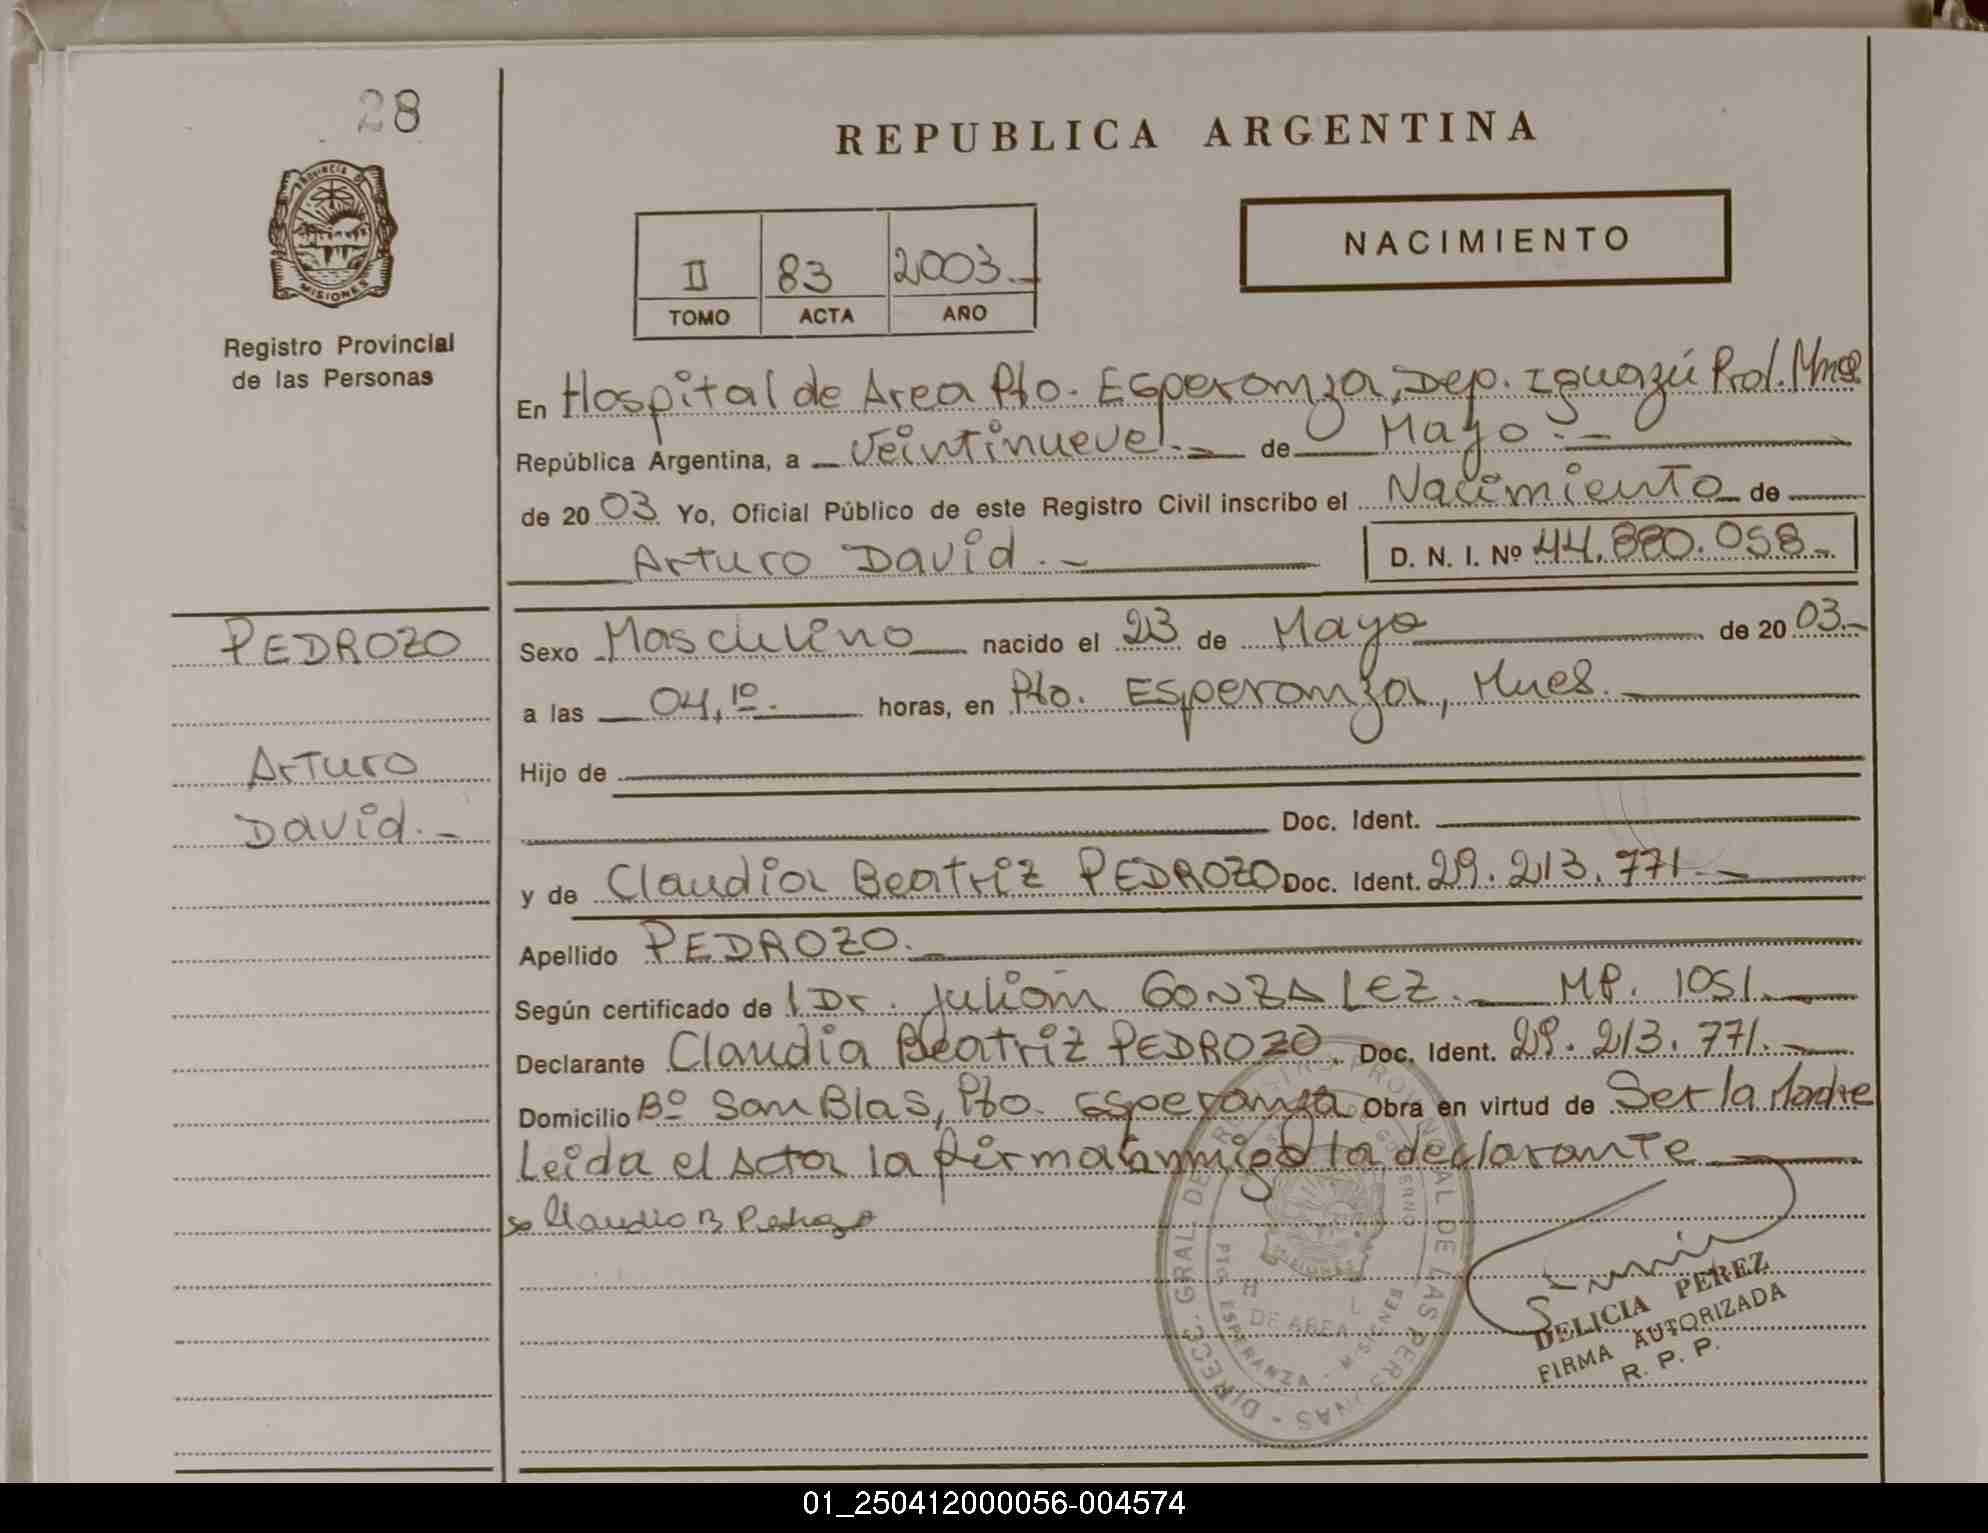 28
REPUBLICA ARGENTINA
PROVINCIA DE
MISIONES
Registro Provincial
de las Personas
II 83 2003.-
TOMO ACTA AÑO
NACIMIENTO
En Hospital de Area Pto. Esperanza, Dep. Iguazú
República Argentina, a Veintinueve.- de Mayo.-
de 2003 Yo, Oficial Público de este Registro Civil inscribo el Nacimiento de
Arturo David.- D. N. I. Nº 44.880.058-
PEDROZO
Arturo
David.-
Sexo Masculino nacido el 23 de Mayo de 2003.-
a las 04,10. horas, en Pto. Esperanza, Mnes.
Hijo de
Doc. Ident.
y de Claudia Beatriz PEDROZO Doc. Ident. 29.213.771.-
Apellido PEDROZO.
Según certificado de l Dr. Julian GONZALEZ. MP. 1051.
Declarante Claudia Beatriz PEDROZO. Doc. Ident. 29.213.771.-
Domicilio Bº San Blas, Pto. Esperanza Obra en virtud de Ser la Madre
Leida el Acta la firma conmigo la declarante
Claudia B Pedrozo
DIRECC. GRAL. DE REGISTRO PROVINCIAL DE LAS PERSONAS
GOBIERNO
MISIONES
DE AREA
PTO. ESPERANZA - MISIONES
DELICIA PEREZ
FIRMA AUTORIZADA
R. P. P.
01_250412000056-004574